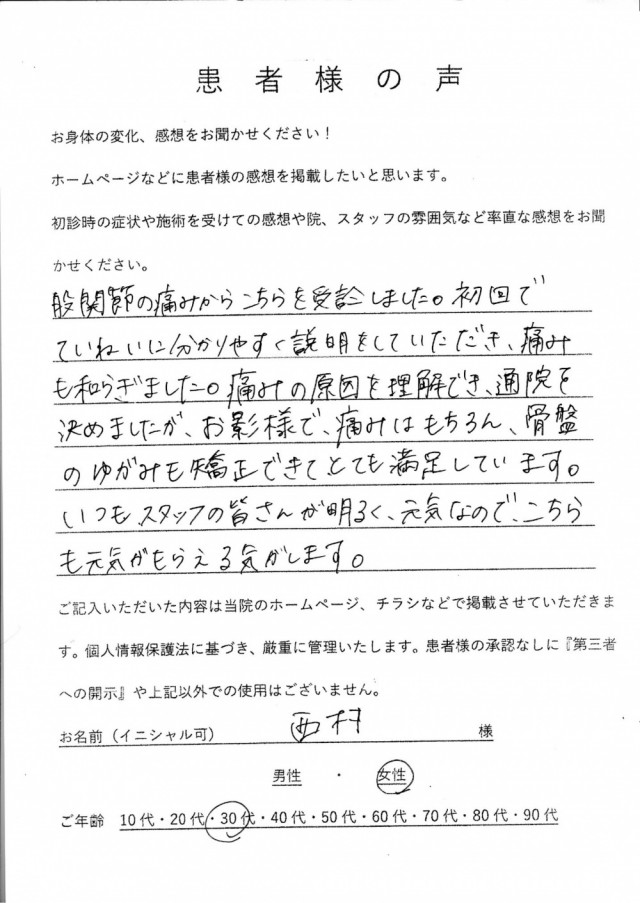 患者様の声
お身体の変化、感想をお聞かせください！
ホームページなどに患者様の感想を掲載したいと思います。
初診時の症状や施術を受けての感想や院、スタッフの雰囲気など率直な感想をお聞
かせください。
股関節の痛みからこちらを受診しました。初回で
ていねいに分かりやすく説明をしていただき、痛み
も和らぎました。痛みの原因を理解でき、通院を
決めましたが、お影様で、痛みはもちろん、骨盤
のゆがみも矯正できてとても満足しています。
いつもスタッフの皆さんが明るく、元気なので、こちら
も元気がもらえる気がします。
ご記入いただいた内容は当院のホームページ、チラシなどで掲載させていただきま
す。個人情報保護法に基づき、厳重に管理いたします。患者様の承認なしに『第三者
への開示』や上記以外での使用はございません。
お名前（イニシャル可） 西村 様
男性 ・ 女性
ご年齢 10代・20代・30代・40代・50代・60代・70代・80代・90代